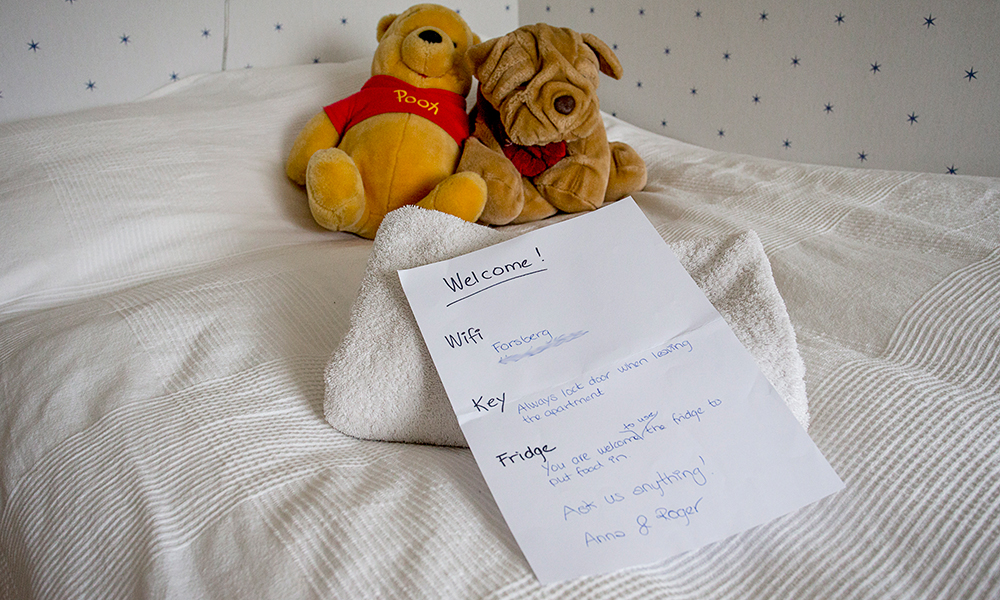 Pooh
Welcome!
Wifi
Forsberg
Key
Always lock door when leaving
the apartment
Fridge
to use
You are welcome the fridge to
put food in.
Ask us anything!
Anna & Roger